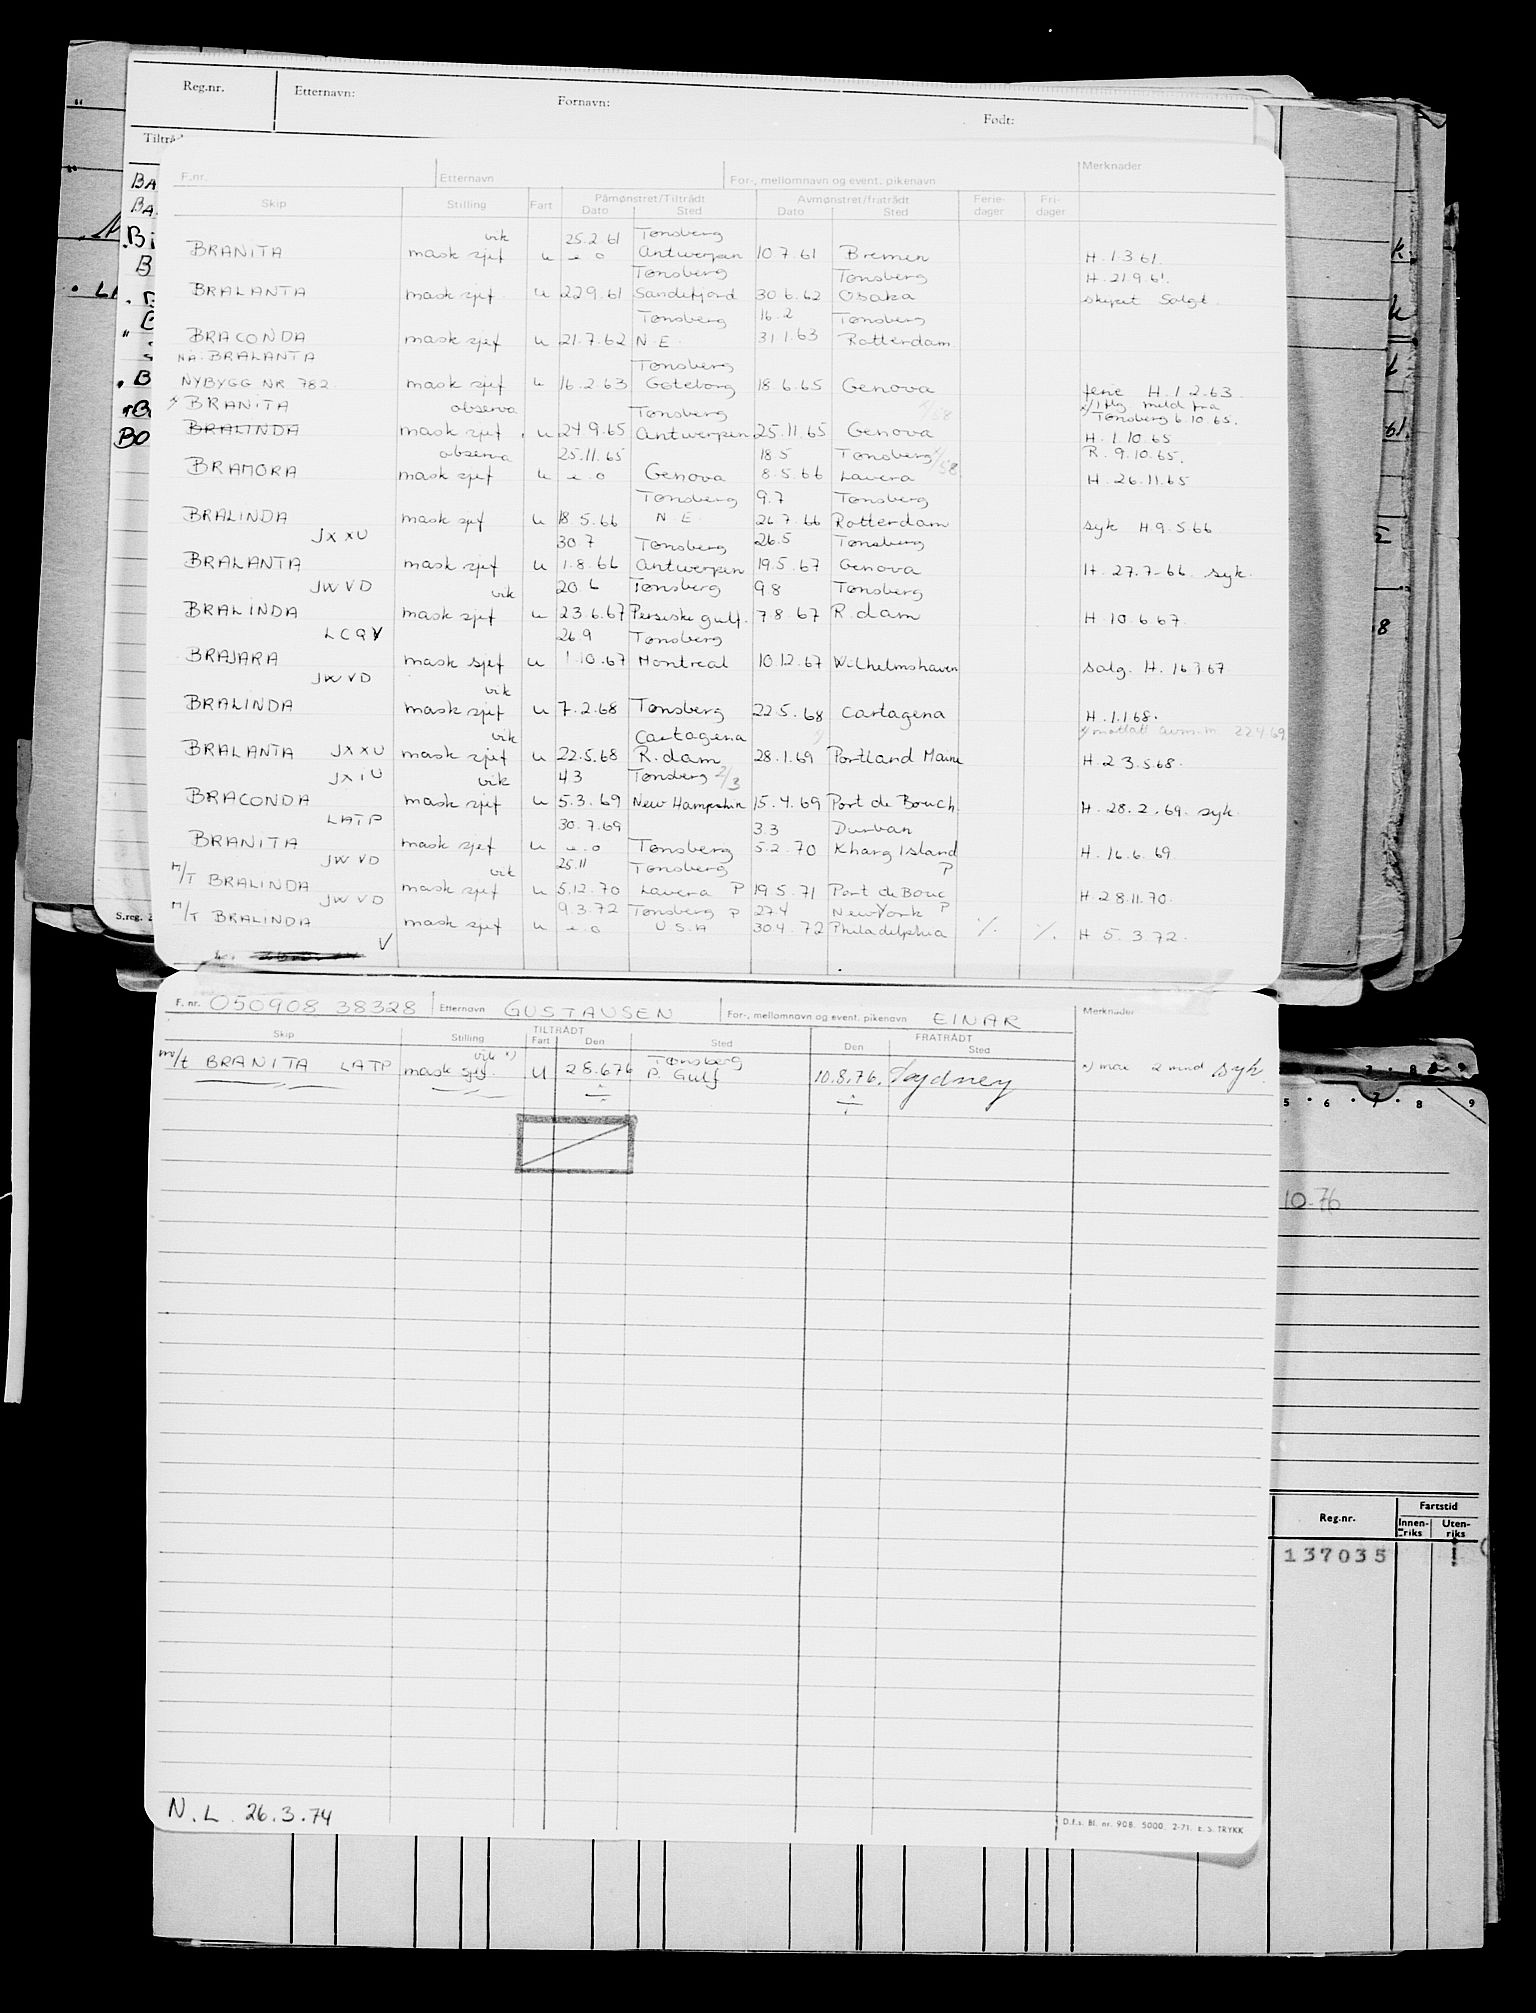 Reg.nr. Etternavn: Fornavn: Født:
F.nr. Etternavn For-, mellomnavn og event. pikenavn Merknader
Skip Stilling Fart Påmønstret/Tiltrådt Avmønstret/fratrådt Ferie- Fri-
Dato Sted Dato Sted dager dager
vik 25.2.61 Tønsberg
BRANITA mask sjef u Antwerpen 10 7.61 Bremen H. 1.3 61.
Tønsberg Tønsberg H. 21.9.61.
BRALANTA mask sjef u 22 9.61 Sandefjord 30 6.62 Osaka skipet Solgt.
Tønsberg 16.2 Tønsberg
BRACONDA mask sjef u 21.7.62 N.E. 31 1.63 Rotterdam
NÅ. BRALANTA
Tønsberg
NYBYGG NR 782. mask sjef u 16.2.63 Göteborg 18.6.65 Genova ferie H. 1.2.63
BRANITA observa Tønsberg Tønsberg 6.10.65.
BRALINDA mask sjef u 24.9.65 Antwerpen 25.11.65 Genova H. 1.10.65
observa 25.11.65 18.5 Tønsberg R. 9.10.65.
BRAMORA mask sjef u Genova 8.5.66 Lavera H. 26.11.65
Tønsberg 9.7 Tønsberg
BRALINDA mask sjef u 18.5.66 N.E. 26 7.66 Rotterdam syk H.9.5.66
JXXU 30.7 Tønsberg 26.5 Tønsberg
BRALANTA mask sjef u 1.8.66 Antwerpen 19.5.67 Genova H. 27.7-66. syk.
JWVD vik 20 6 Tønsberg 9 8 Tønsberg
BRALINDA mask sjef u 23.6.67 Persiske gulf. 7.8.67 R.dam H. 10.6.67.
LCQV 26.9 Tønsberg
BRAJARA mask sjef u 1.10.67 Montreal 10.12.67 Wilhelmshaven
JWVD vik
BRALINDA mask sjef u 7.2.68 Tønsberg 22.5.68 Cartagena H. 1.1.68.
vik Cartagena
BRALANTA JXXU mask sjef u 22.5.68 R.dam 28.1.69 Portland Maine H. 23.5.68.
JXIU vik 4 3 Tønsberg 2/3
BRACONDA mask sjef u 5.3.69 New Hampshire 15.4.69 Port de Bouch H. 28.2.69. syk.
LATP 30.7.69 3.3 Durban
BRANITA mask sjef u Tønsberg 5.2.70 Kharg Island H. 16.6.69
JWVD vik 25.11 Tønsberg P
M/T BRALINDA mask sjef u 5.12.70 Lavera P 19.5.71 Port de Bouc H. 28.11.70.
JWVD 9.3.72 Tønsberg P 27.4 New York P
M/T BRALINDA mask sjef u USA 30.4.72 Philadelphia ./. ./. H 5.3.72.
V
F. nr. 050908 38328 Etternavn GUSTAVSEN For-, mellomnavn og event. pikenavn EINAR Merknader
Skip Stilling TILTRÅDT FRATRÅDT
Fart Den Sted Den Sted
vik x) Tønsberg
m/t BRANITA LATP mask sjef. U 28.6.76 P. Gulf 10.8.76. Sydney x) max 2 mnd syk.
10.76
Reg.nr. Fartstid
Innen-riks Uten-riks
137035
N.L. 26.3.74
D.f.s. Bl. nr. 908. 5000. 2-71. E. S. TRYKK